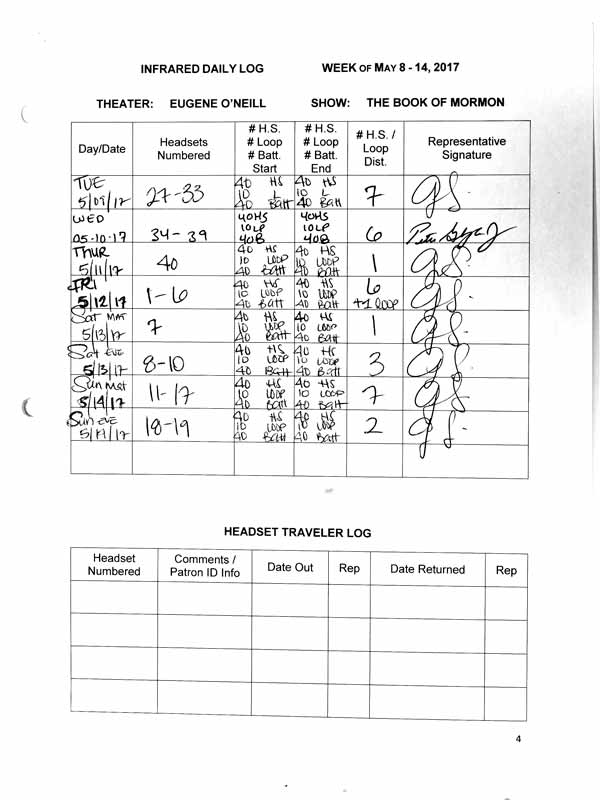 INFRARED DAILY LOG WEEK OF MAY 8 - 14, 2017
THEATER: EUGENE O'NEILL SHOW: THE BOOK OF MORMON
Day/Date Headsets Numbered # H.S. # Loop # Batt. Start # H.S. # Loop # Batt. End # H.S. / Loop Dist. Representative Signature
TUE 5/09/17 27-33 40 HS 10 L 40 Batt 40 HS 10 L 40 Batt 7 GS.
WED 05-10-17 34-39 40HS 10LP 40B 40HS 10LP 40B 6
THUR 5/11/17 40 40 HS 10 LOOP 40 Batt 40 HS 10 LOOP 40 Batt 1 GS.
FRI 5/12/17 1-6 40 HS 10 LOOP 40 Batt 40 HS 10 LOOP 40 Batt 6 +1 loop GS.
Sat MAT 5/13/17 7 40 HS 10 LOOP 40 Batt 40 HS 10 LOOP 40 Batt 1 GS.
Sat EVE 5/13/17 8-10 40 HS 10 LOOP 40 Batt 40 HS 10 LOOP 40 Batt 3 GS.
Sun Mat 5/14/17 11-17 40 HS 10 LOOP 40 Batt 40 HS 10 LOOP 40 Batt 7 GS.
Sun EVE 18-19 40 HS 10 LOOP 40 Batt 40 HS 10 LOOP 40 Batt 2 GS.
HEADSET TRAVELER LOG
Headset Numbered Comments / Patron ID Info Date Out Rep Date Returned Rep
4